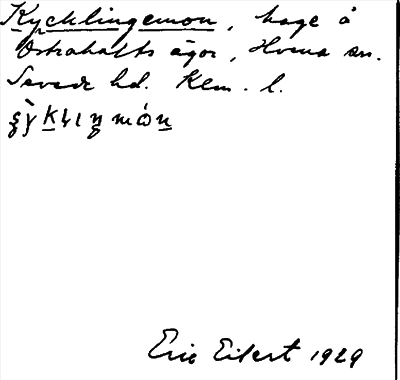 Kycklingemon, hage å
Östrahults ägor, Hvena sn.
Sevede hd. Klm. l.
Eric Eilert 1929